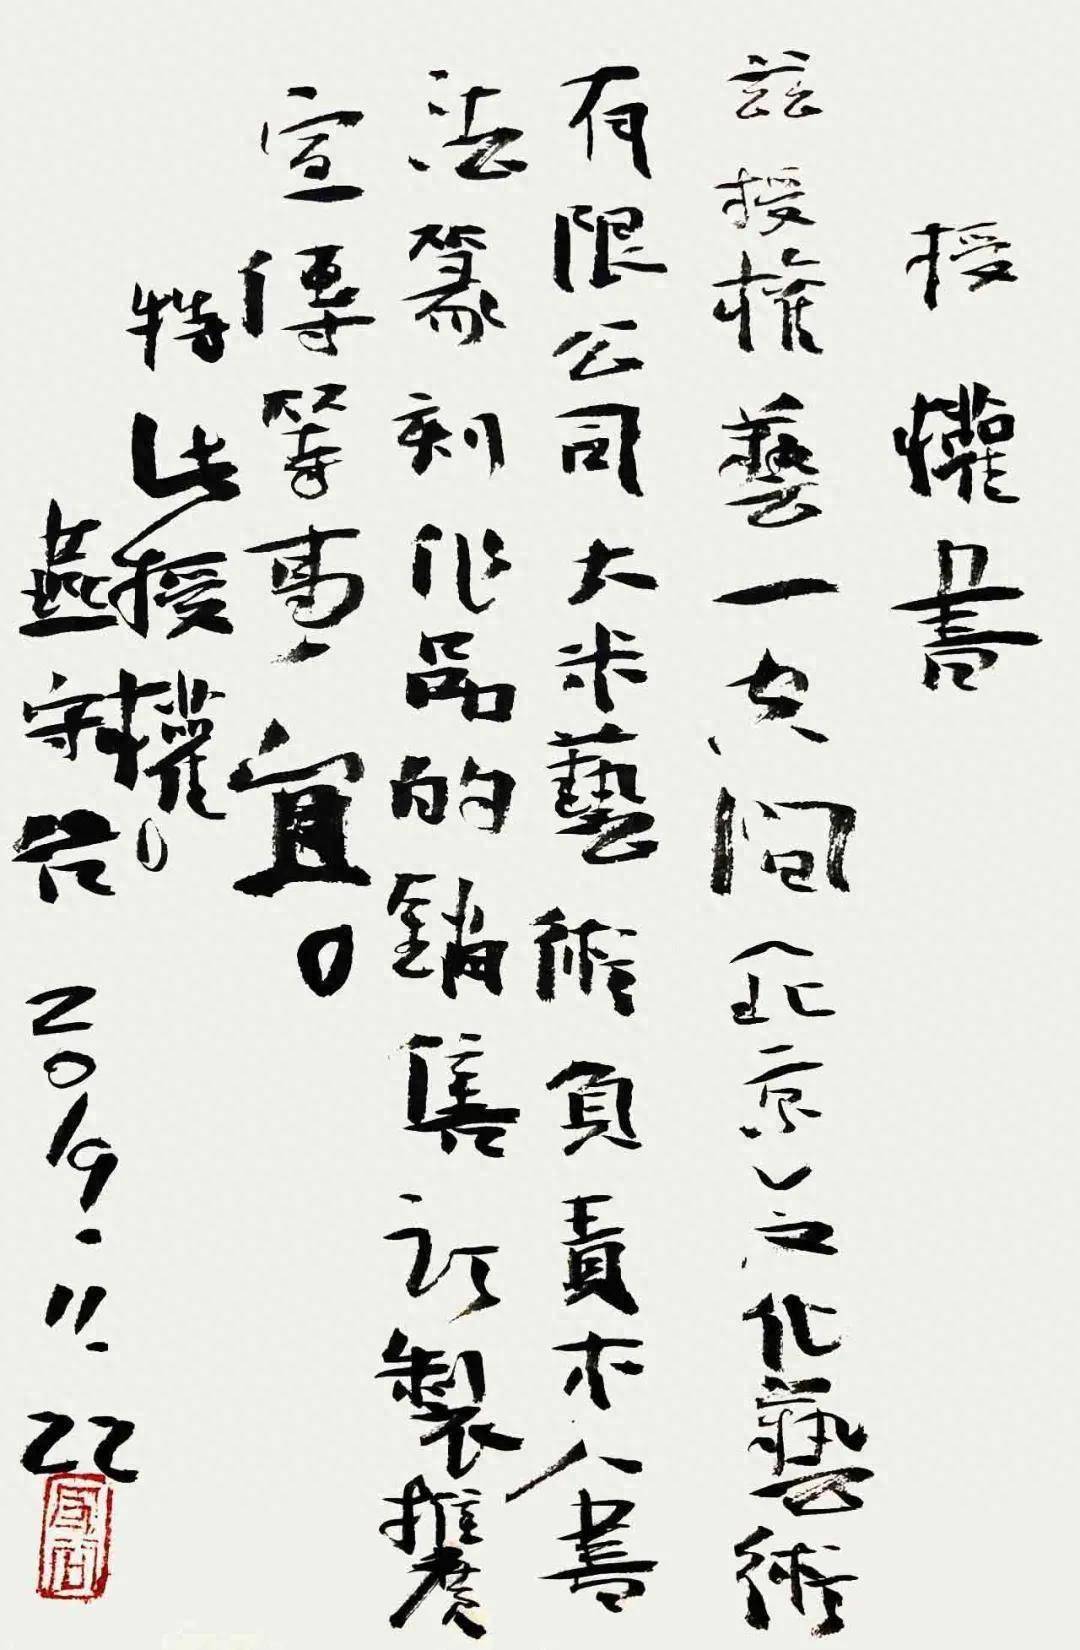 授權書
兹授權藝一空间（北京）文化藝術
有限公司大米藝術負責本人書
法篆刻作品的銷售訂製推廣
宣傳等事宜。
特此授權。
燕守谷 2019.11.22